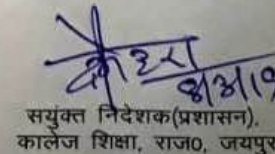 सयुंक्त निदेशक(प्रशासन),
कालेज शिक्षा, राज0, जयपुर